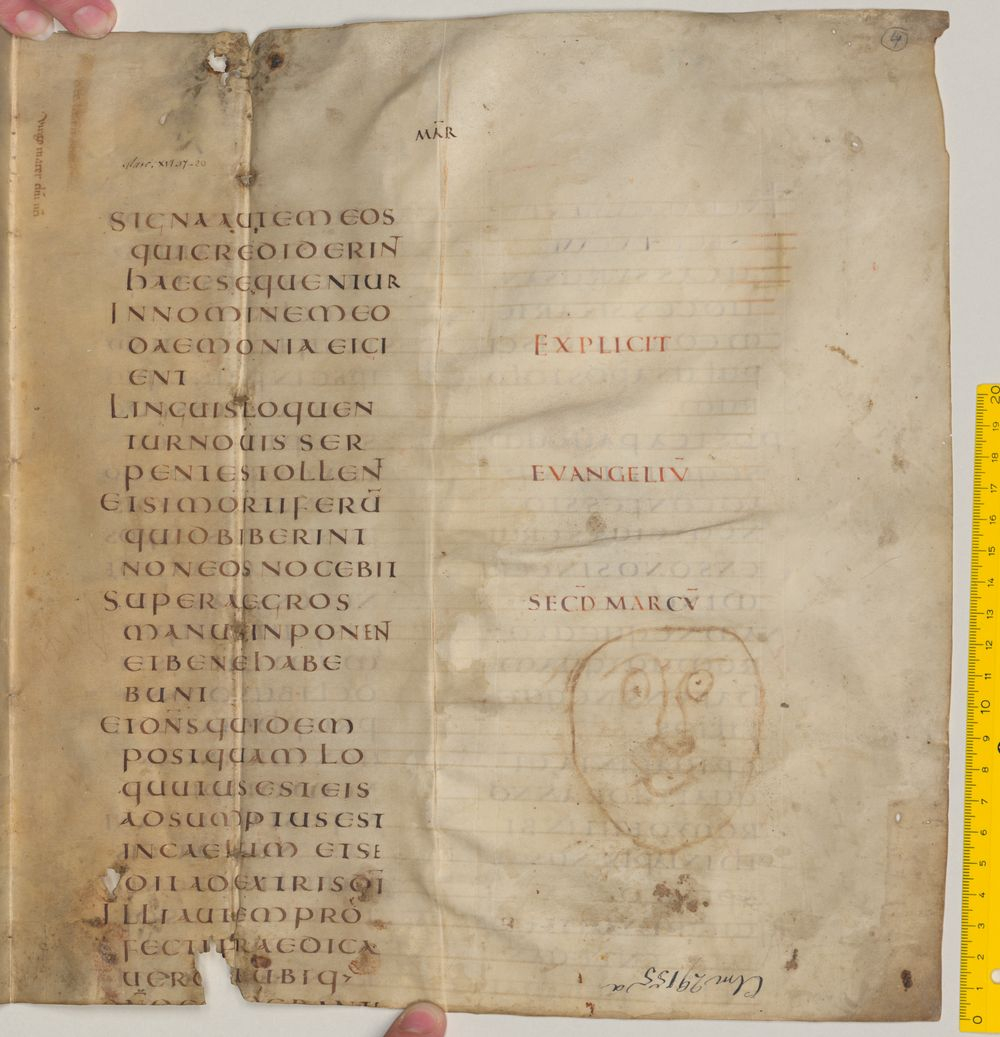 4
MAR
Marc. XVI. 17-20
SIGNA AUTEM EOS
QUI CREDIDERIN̄
HAEC SEQUENTUR
IN NOMINE MEO
DAEMONIA EICI
ENT
LINGUIS LOQUEN
TUR NOUIS SER
PENTES TOLLEN̄
ET SI MORTIFERŪ
QUID BIBERINT
NON EOS NOCEBIT
SUPER AEGROS
MANUS INPONEN̄
ET BENE HABE
BUNT
ET DN̄S QUIDEM
POSTQUAM LO
QUUTUS EST EIS
ADSUMPTUS EST
IN CAELUM ET SE
DIT AD EXTRIS DĪ
ILLI AUTEM PRO
FECTI PRAEDICA
UERU UBIQ·
EXPLICIT
EVANGELIV̄
SECD̄ MARCV̄
Clm 29155a